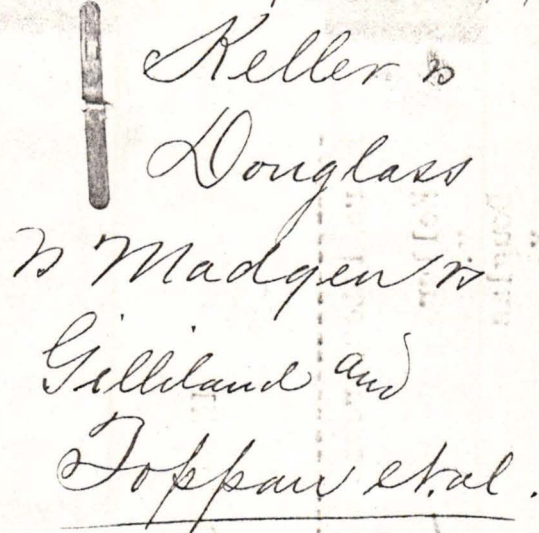 Keller vs
Douglass
vs Madgen vs
Gilliland and
Toppan et.al.